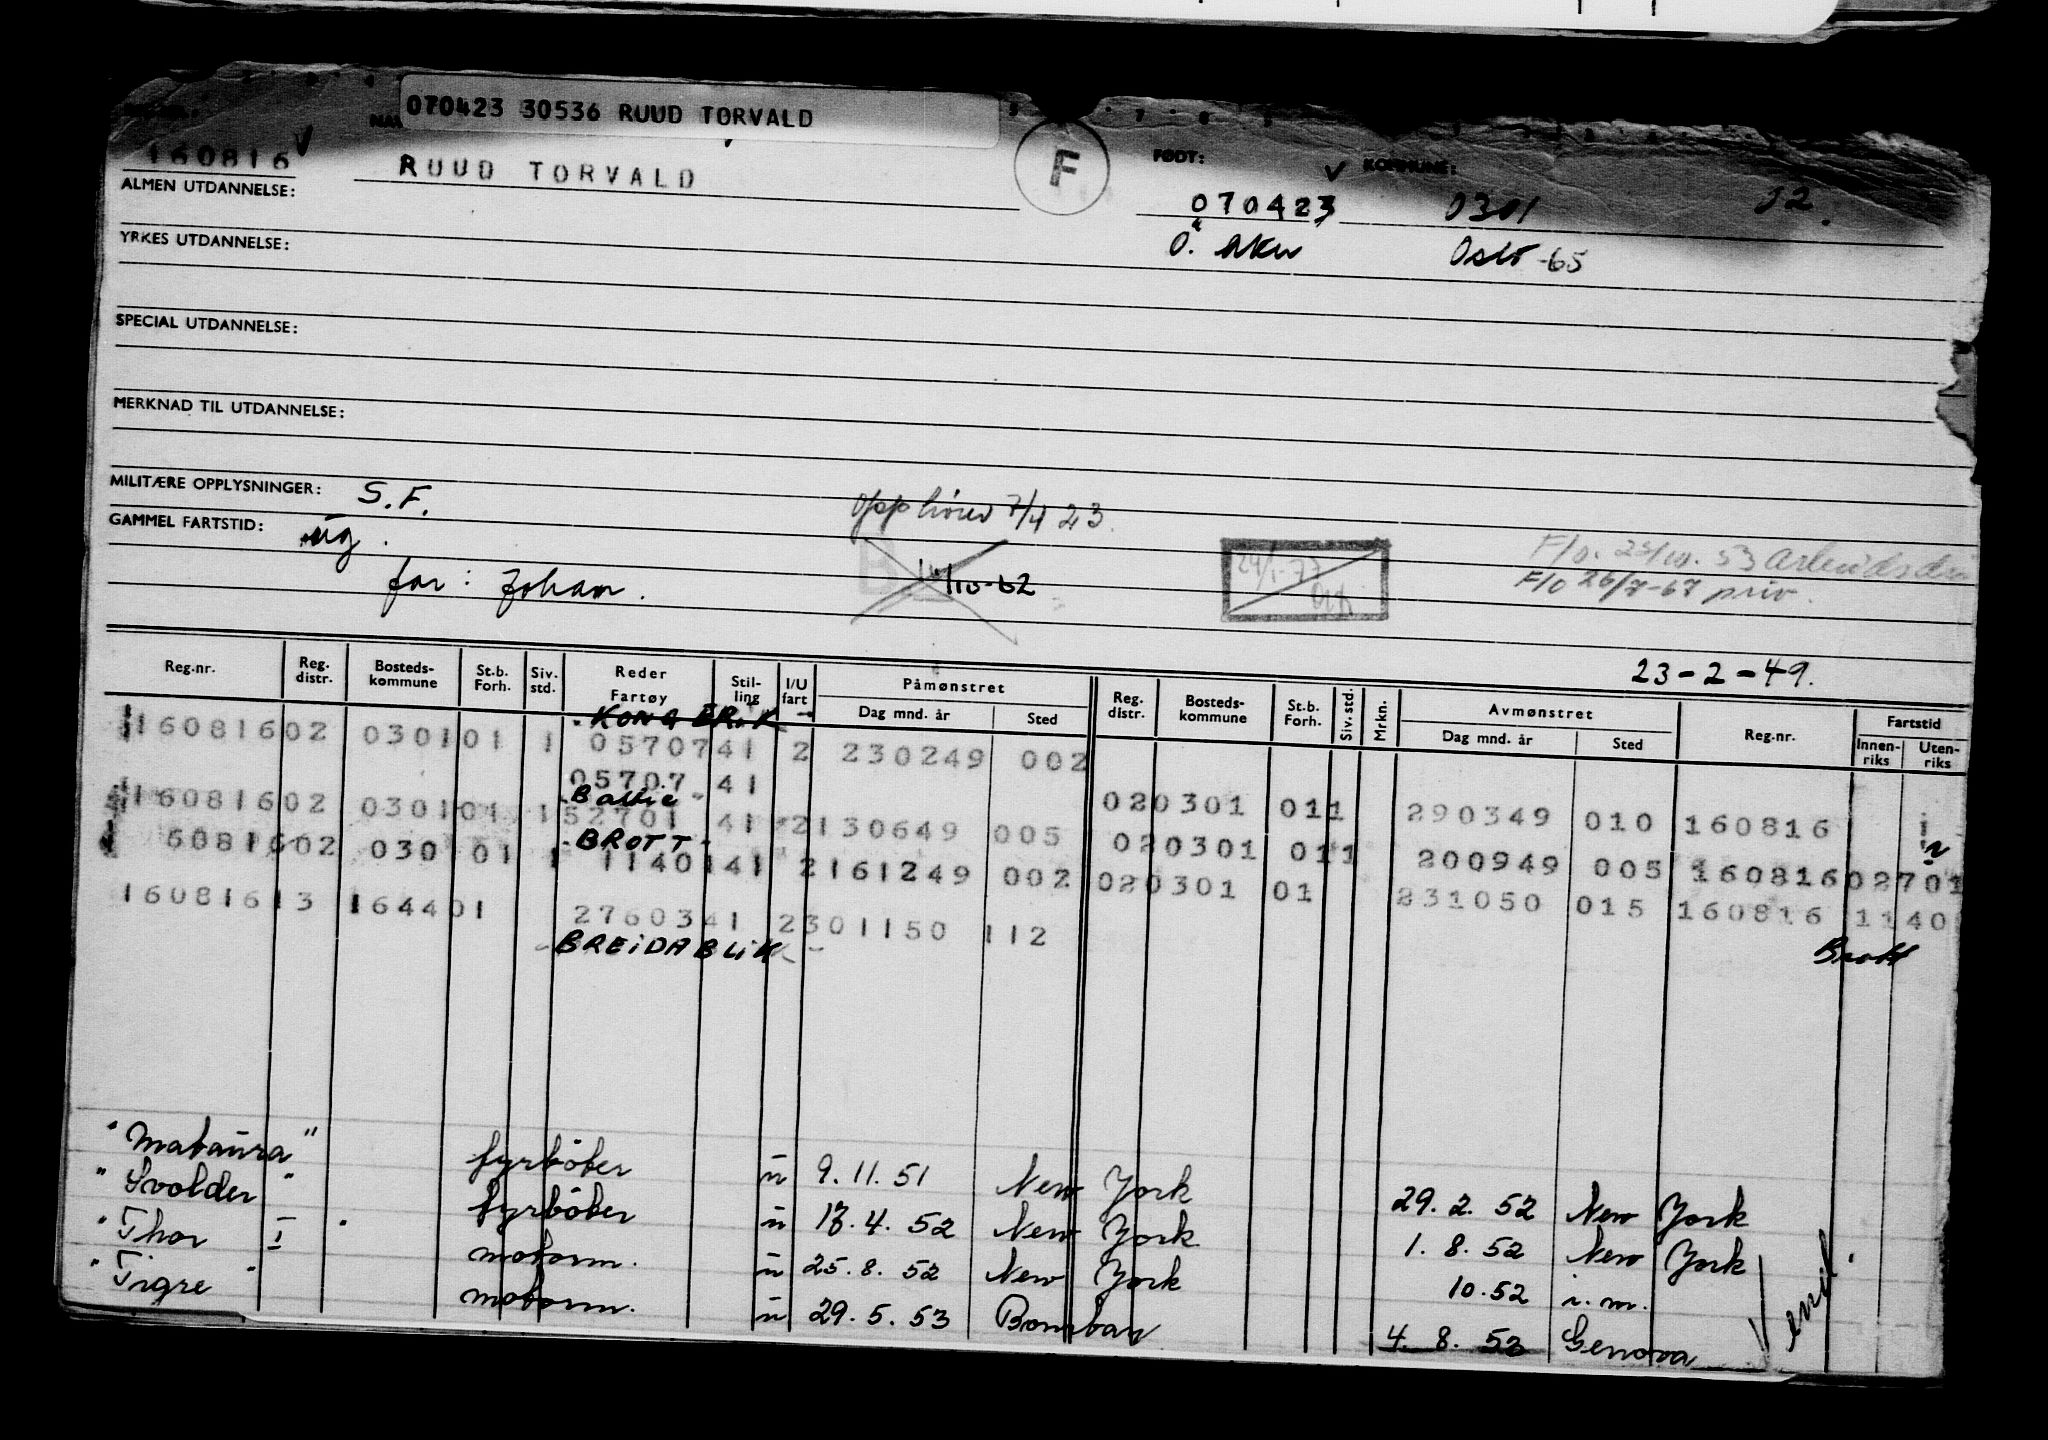 070423 30536 RUUD TORVALD
160816
RUUD TORVALD
F
FØDT:
KOMMUNE:
070423
0301
02.
ALMEN UTDANNELSE:
Ø. Aker
Oslo -65
YRKES UTDANNELSE:
SPECIAL UTDANNELSE:
MERKNAD TIL UTDANNELSE:
MILITÆRE OPPLYSNINGER: S.F.
GAMMEL FARTSTID: ug.
Opphører 7/4 23.
far: Johan.
/10-62
24/1-77
F/o. 23/10. 53 Arbeidsdir
F/o 26/7-67 priv.
23-2-49.
Reg.nr. Reg. distr. Bosteds-kommune St.b. Forh. Siv. std. Reder Fartøy Stil-ling I/U fart Påmønstret Dag mnd. år Sted Reg. distr. Bosteds-kommune St.b. Forh. Siv. std. Mrkn. Avmønstret Dag mnd. år Sted Reg.nr. Fartstid Innen-riks Uten-riks
KONG ERIK
16081602 030101 1 0570741 2 230249 002
05707 41 020301 011 290349 010 160816
Baltic
16081602 030101 1 52701 41 2 130649 005 020301 011 200949 005 160816 02701
BROTT
6081602 030 01 1 1140141 2 161249 002 020301 01 231050 015 160816 1140
16081613 164401 2760341 2 301150 112
Brott
BREIDABLIK
"Mataura" fyrbøter u 9.11.51 New York 29.2.52 New York
"Svolder" fyrbøter u 18.4.52 New York 1.8.52 New York
"Thor I" motorm. u 25.8.52 New York 10.52 i.m.
"Tigre" motorm. u 29.5.53 Bombay 4.8.53 Genova